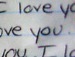 I love yo
ove you.
you. I lo